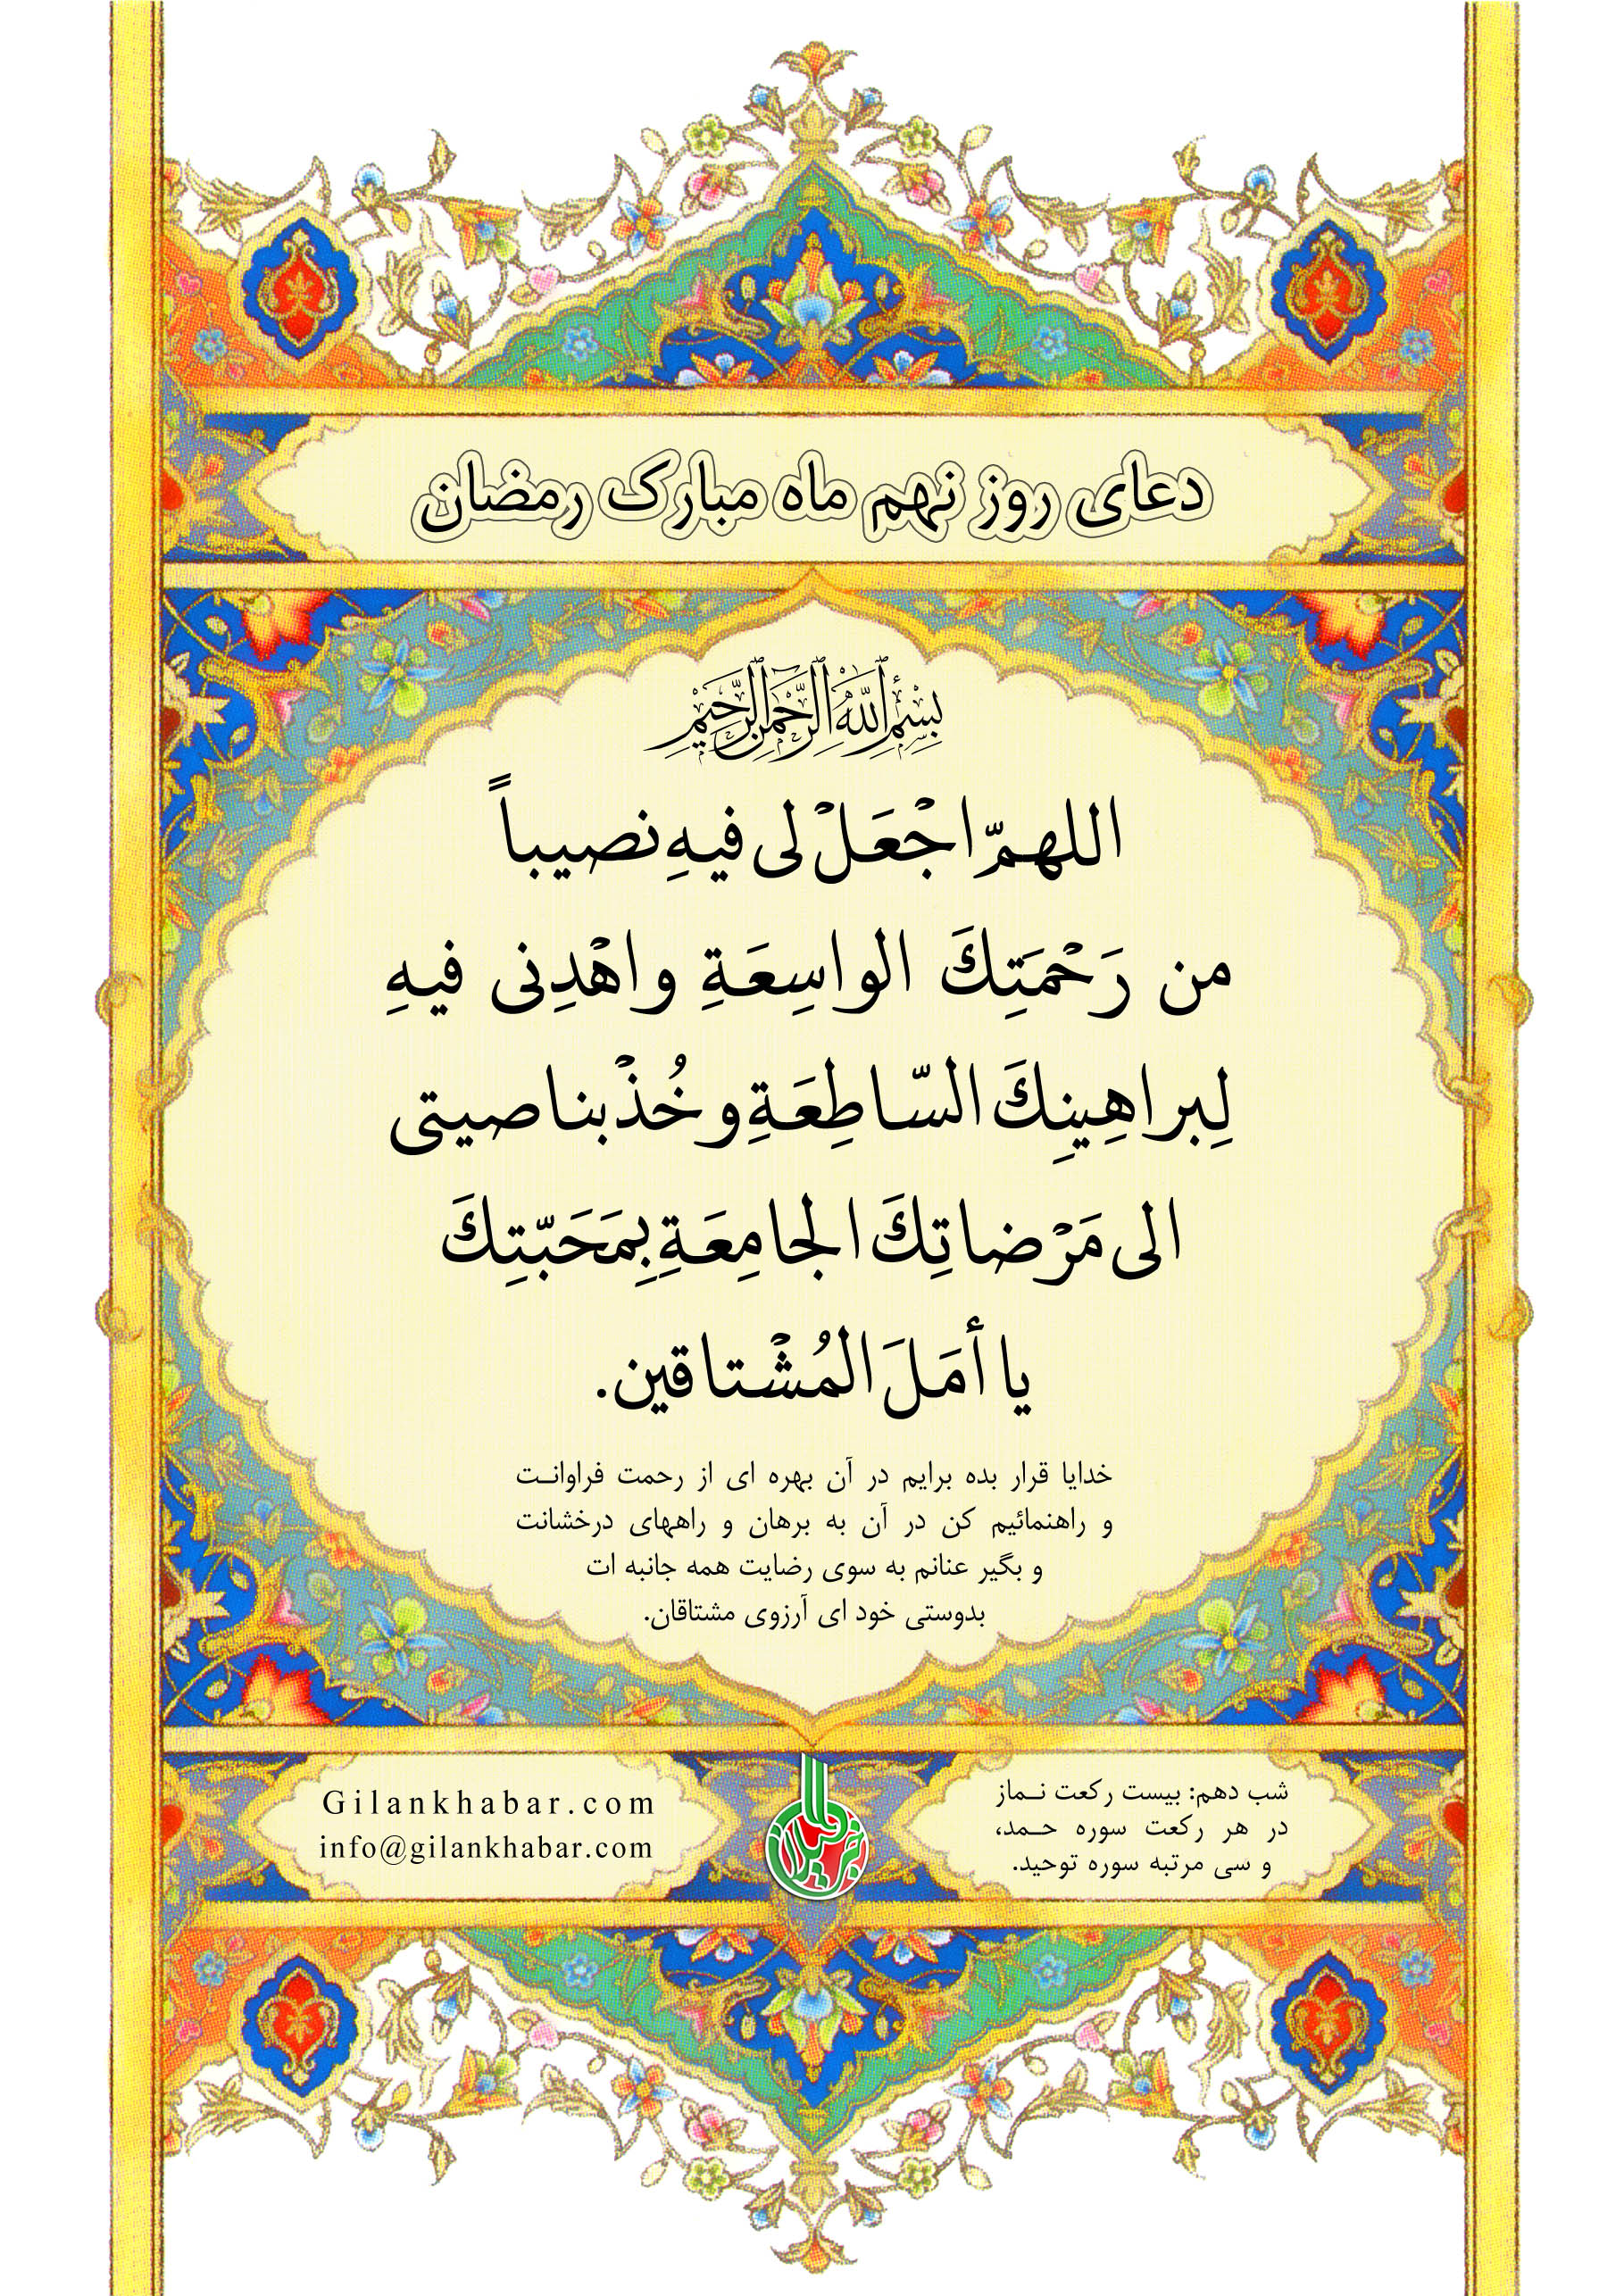 دعای روز نهم ماه مبارک رمضان
بِسْمِ اللَّهِ الرَّحْمَنِ الرَّحِيمِ
اللهمّ اجْعَلْ لی فیهِ نصیباً
من رَحْمَتِكَ الواسِعَةِ واهْدِنی فیهِ
لِبراهِینِكَ السّاطِعَةِ وخُذْ بناصیتی
الی مَرْضاتِكَ الجامِعَةِ بِمَحَبّتِكَ
یا أمَلَ المُشْتاقین.
خدایا قرار بده برایم در آن بهره ای از رحمت فراوانـت
و راهنمائیم کن در آن به برهان و راههای درخشانت
و بگیر عنانم به سوی رضایت همه جانبه ات
بدوستی خود ای آرزوی مشتاقان.
شب دهم: بیست رکعت نـماز
در هر رکعت سوره حـمد،
و سی مرتبه سوره توحید.
خبر گیلان
Gilankhabar.com
info@gilankhabar.com